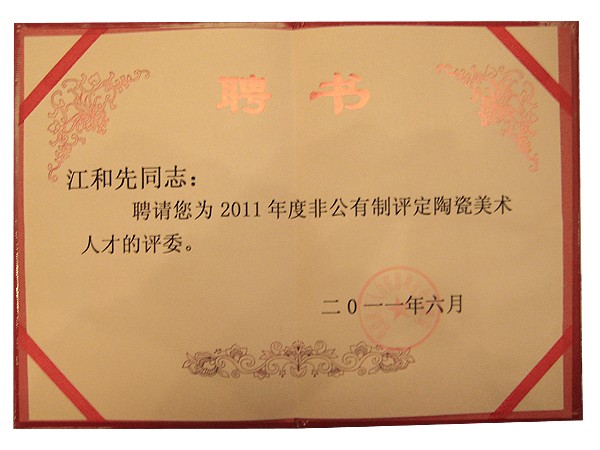 聘书
江和先同志：
聘请您为 2011 年度非公有制评定陶瓷美术
人才的评委。
二0一一年六月